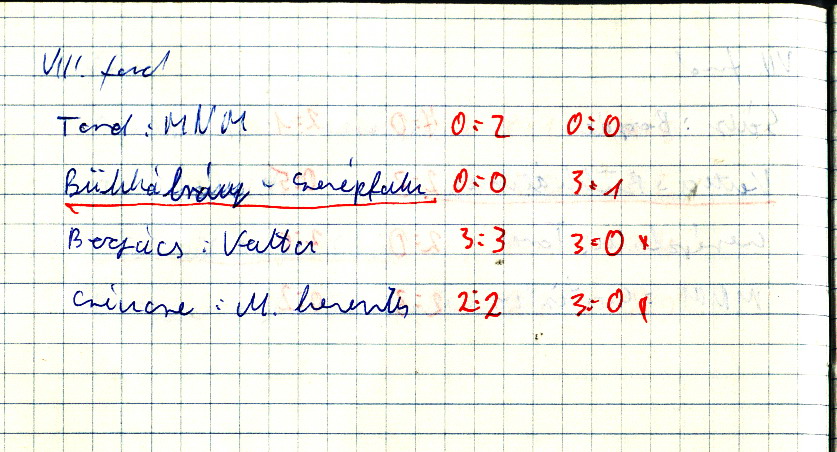 VIII. ford
Tard : MNM 0:2 0:0
Bükkábrány - Cserépfalu 0:0 3:1
Bogács : Vatta 3:3 3:0 x
Csincse : M. keresztes 2:2 3:0